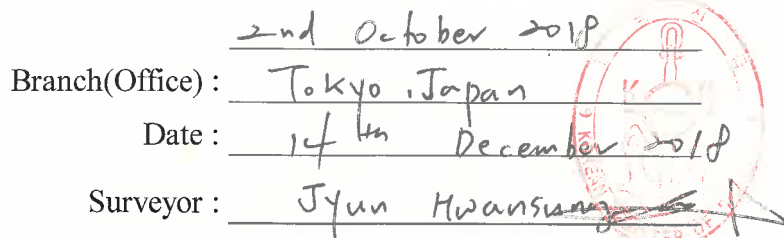 2nd October 2018
Branch(Office) : Tokyo, Japan
Date : 14th December 2018
Surveyor : Jyun Hwansung